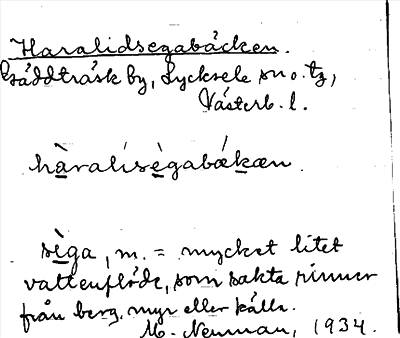 Haralidsegabäcken.
Gäddträsk by, Lycksele sn o. tg,
Västerb. l.
hàralíseg̀abækæn.
sèga, m. = mycket litet
vattenflöde, som sakta rinner
från berg, myr eller källa.
M. Neuman, 1934.